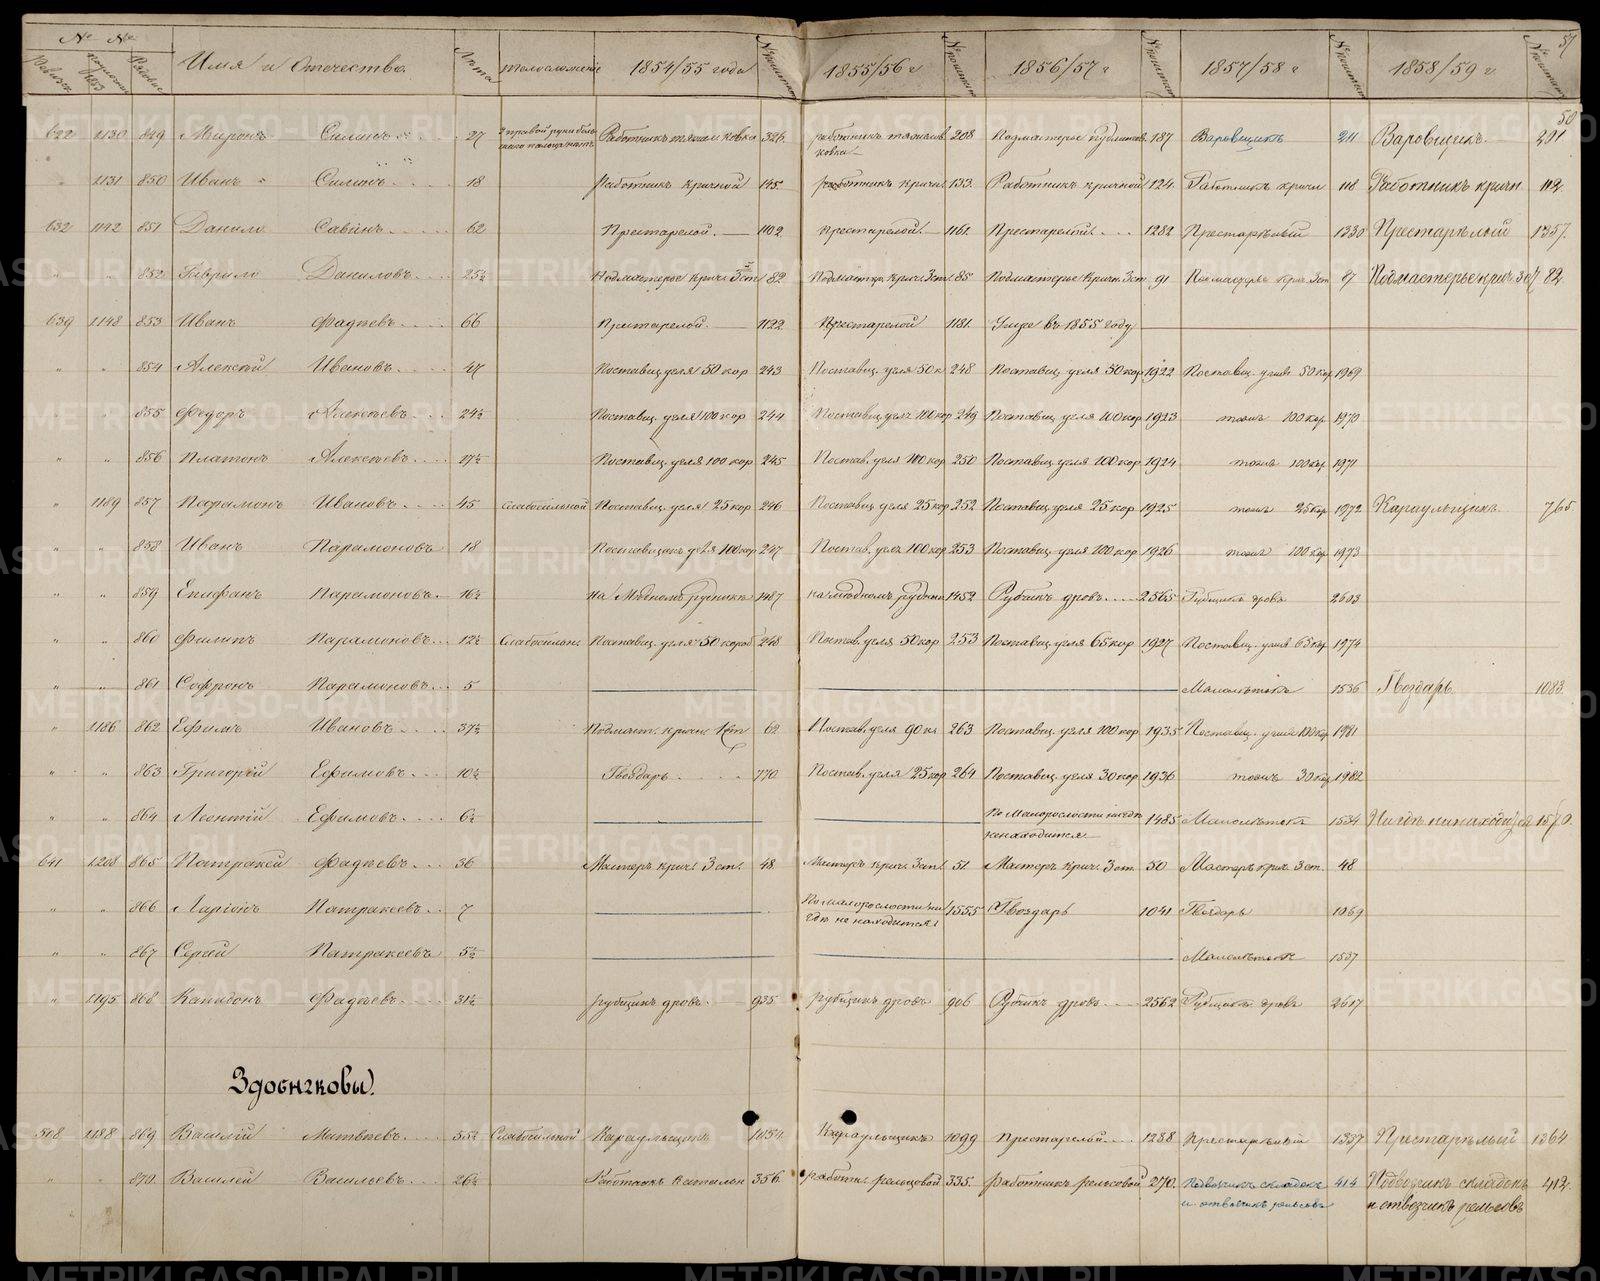 57
№ № Имя и Отечество Лета Телосложение 1854/55 года № 1855/56 г № 1856/57 г № 1857/58 г № 1858/59 г. №
50
622 1130 849 Миронъ Силинъ 27 Работникъ 326 работникъ 208 Подмастерье 187 Варовщикъ 211 Варовщикъ 201
" 1131 850 Иванъ Силинъ 18 Работникъ кричной 145 работникъ кричн. 133 Работникъ кричной 124 Работникъ кричн 118 Работникъ кричн 112
632 1142 851 Данило Савинъ 62 Престарелой 1102 престарелой 1161 Престарелый 1282 Престарѣлый 1330 Престарѣлый 1357
" " 852 Гаврило Даниловъ 25½ Подмастерье крич. 3 ст 82 Подмастер. крич. 3 ст. 85 Подмастерье Кричн. 3 ст 91 Подмастерье крич. 3 ст 87 Подмастерье крич 3 ст 82
639 1148 853 Иванъ Фадѣевъ 66 Престарелой 1122 Престарелой 1181 Умре въ 1855 году
" " 854 Алексѣй Ивановъ 47 Поставщ. угля 50 кор 243 Поставщ. угля 50 к 248 Поставщ угля 50 кор 1922 Поставщ. угля 50 кор 1969
" " 855 Федоръ Алексѣевъ 24½ Поставщ. угля 100 кор 244 Поставщ. угля 100 кор 249 Поставщ угля 100 кор 1923 тоже 100 кор 1970
" " 856 Платонъ Алексѣевъ 17½ Поставщ. угля 100 кор 245 Постав. угля 100 кор 250 Поставщ угля 100 кор 1924 тоже 100 кор 1971
" 1189 857 Парамонъ Ивановъ 45 Слабосильной Поставщ. угля 25 кор 246 Поставщ угля 25 кор 252 Поставщ угля 25 кор 1925 тоже 25 кор 1972 Караульщикъ 765
" " 858 Иванъ Парамоновъ 18 Поставщикъ угля 100 кор 247 Постав. угля 100 кор 253 Поставщ угля 100 кор 1926 тоже 100 кор 1973
" " 859 Епифанъ Парамоновъ 16½ на Мѣдномъ рудникѣ 1487 на мѣдномъ рудник 1452 Рубщикъ дровъ 2565 Рубщикъ дровъ 2603
" " 860 Филипъ Парамоновъ 12½ Слабосильн. Поставщ. угля 50 короб 248 Постав. угля 50 кор 253 Поставщ. угля 65 кор 1927 Поставщ. угля 65 кор 1974
" " 861 Софронъ Парамоновъ 5 Малолѣтокъ 1536 Гвоздарь 1083
" 1186 862 Ефимъ Ивановъ 37½ Подмаст. кричн. 1 ст 62 Постав. угля 90 к 263 Поставщ. угля 100 кор 1935 Поставщ. угля 100 кор 1981
" " 863 Григорій Ефимовъ 10½ Гвоздарь 770 Постав. угля 25 кор 264 Поставщ. угля 30 кор 1936 тоже 30 кор 1982
" " 864 Леонтій Ефимовъ 6½ По малорослости нигдѣ не находится 1485 Малолѣтокъ 1534 Нигдѣ не находится 1570
641 1208 865 Патракей Фадѣевъ 36 Мастеръ крич. 3 ст. 48 Мастеръ крич. 3 ст. 51 Мастеръ крич. 3 ст 50 Мастеръ крич. 3 ст. 48
" " 866 Ларіонъ Патракеевъ 7 По малорослости нигдѣ не находится 1555 Гвоздарь 1041 Гвоздарь 1069
" " 867 Сергѣй Патракеевъ 5½ Малолѣтокъ 1537
" 1195 868 Капидонъ Фадѣевъ 31½ рубщикъ дровъ 935 рубщикъ дровъ 906 Рубщикъ дровъ 2562 Рубщикъ дровъ 2617
Здобняковы.
508 1188 869 Василій Матвѣевъ 55½ Слабосильной Караульщикъ 1154 Караульщикъ 1099 престарелой 1288 Престарѣлый 1337 Престарѣлый 1364
" " 870 Василей Васильевъ 26½ Работникъ 356 работн. рельсовой 335 работникъ рельсовой 270 Подвозчикъ складокъ 414 Подвозчикъ складокъ 412
и отвозчикъ рельсовъ и отвозчикъ рельсовъ
METRIKI.GASO-URAL.RU